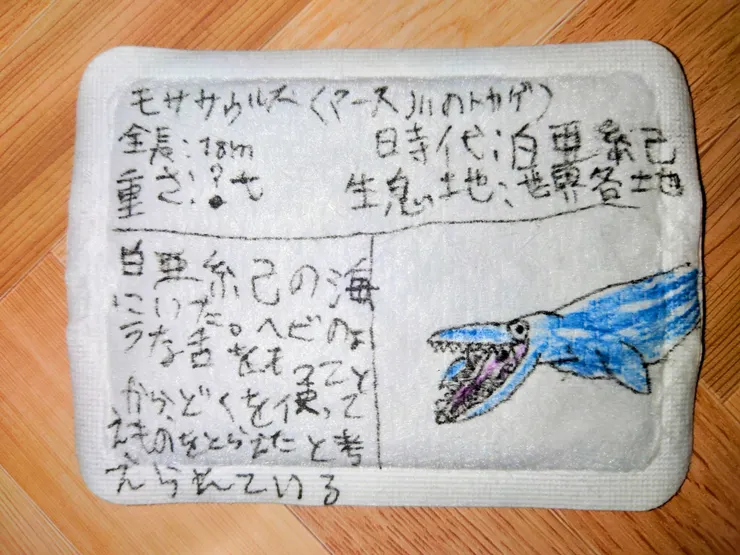 モササウルス(マース川のトカゲ)
全長:18m
時代:白亜紀
重さ:?t
生息地:世界各地
白亜紀の海
にいた。ヘビのよ
うな舌をもつこと
からどくを使って
えものをとらえたと考
えられている